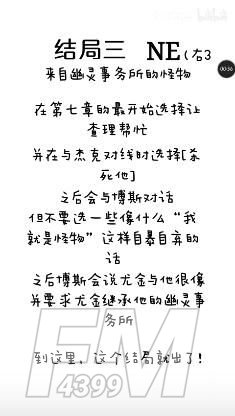 结局三 NE(右3
00:56
来自幽灵事务所的怪物
在第七章的最开始选择让
查理帮忙
并在与杰克对线时选择[杀
死他]
之后会与博斯对话
但不要选一些像什么“我
就是怪物”这样自暴自弃的
话
之后博斯会说尤金与他很像
并要求尤金继承他的幽灵事
务所
到这里，这个结局就出了!
FM
4399